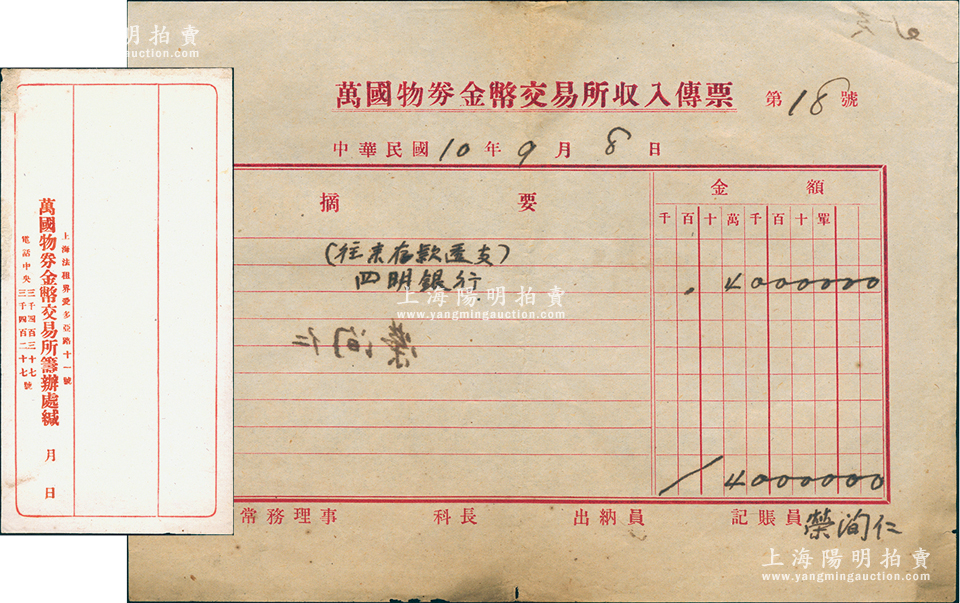 萬國物劵金幣交易所收入傳票 第18號
中華民國10年9月8日
摘要 金額
千百十萬千百十單
(往來存款透支)
四明銀行 4000000
榮洵仁
4000000
常務理事 科長 出納員 記賬員 榮洵仁
上海法租界愛多亞路十一號
萬國物券金幣交易所籌辦處緘 月 日
電話中央三千四百三十七 三千四百二十七號
上海陽明拍賣
www.yangmingauction.com
上海陽明拍賣
www.yangmingauction.com
上海陽明拍賣
www.yangmingauction.com